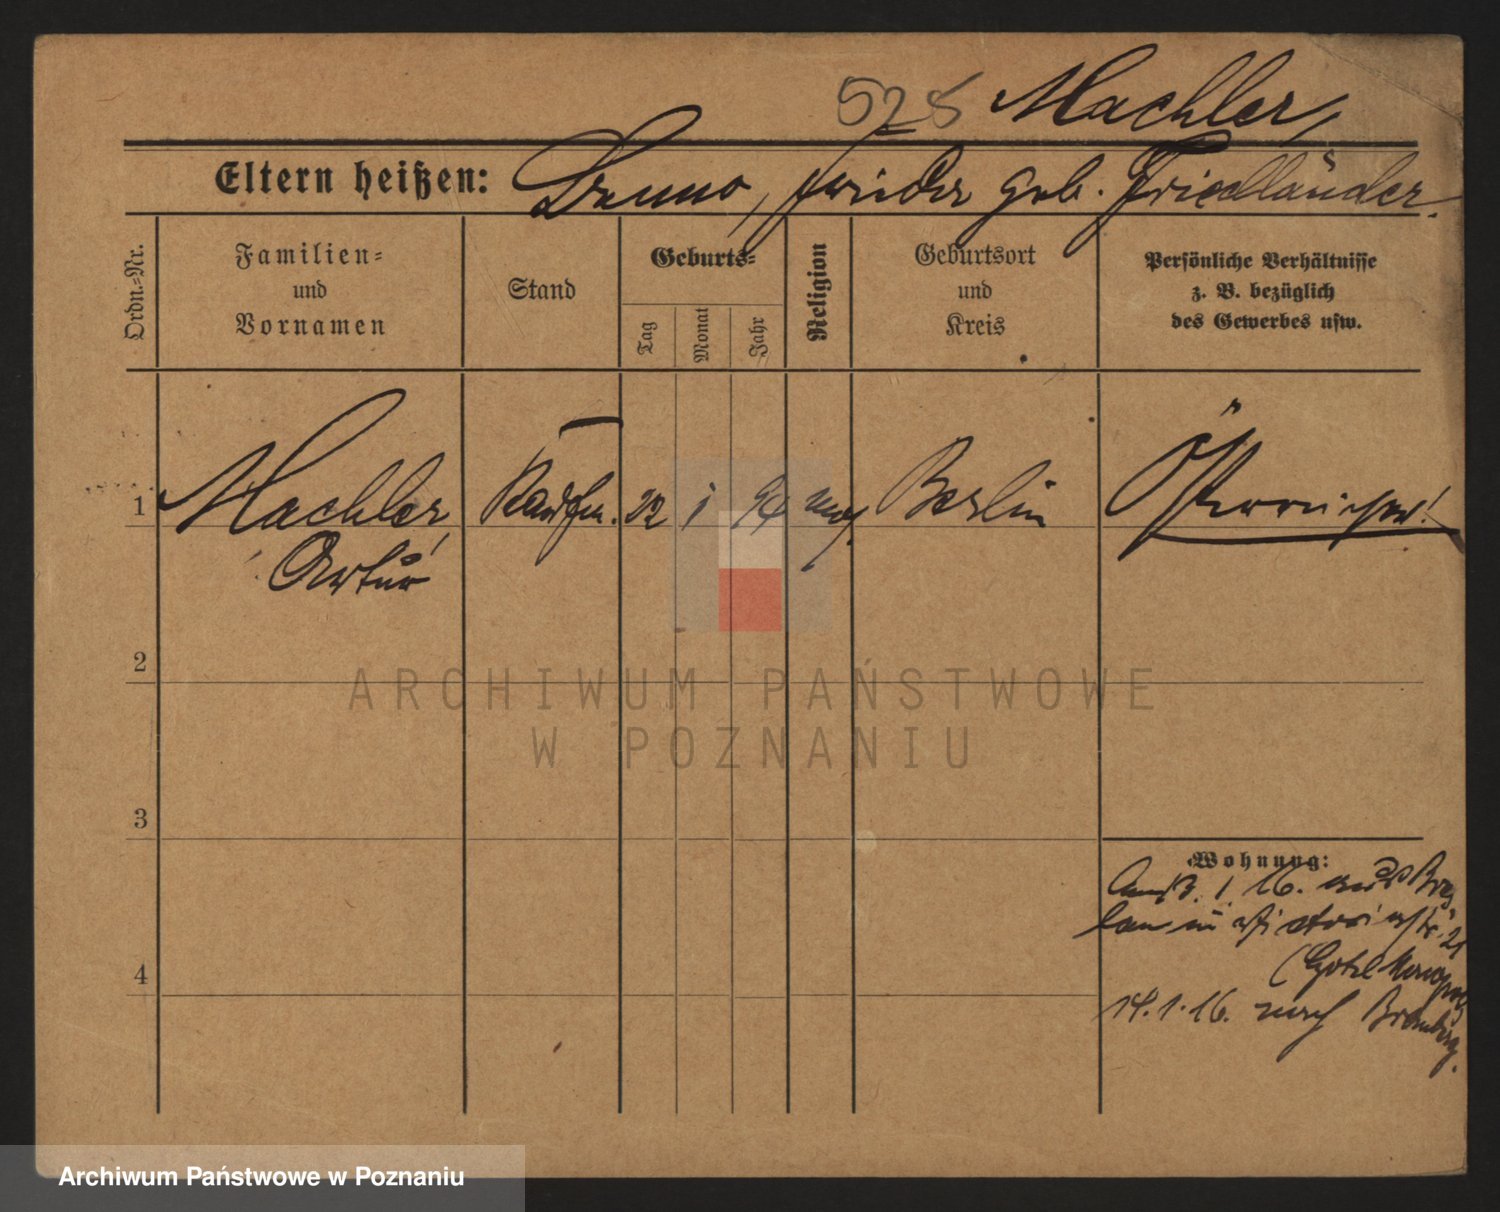 528 Machler,
Eltern heißen: Bruno, geb. Friedländer.
Ordn.-Nr.
Familien-
und
Vornamen
Stand
Geburts-
Tag
Monat
Jahr
Religion
Geburtsort
und
Kreis
Persönliche Verhältnisse
z. B. bezüglich
des Gewerbes usw.
1 Machler, Kaufm. 22 1 94 mos. Berlin Österreicher!
Artur
2
3
4
Wohnung:
13. 1. 16. aus Bres
lau in Victoriastr. 21
(Hotel Monopol)
14. 1. 16. nach Bromberg.
ARCHIWUM PAŃSTWOWE
W POZNANIU
Archiwum Państwowe w Poznaniu